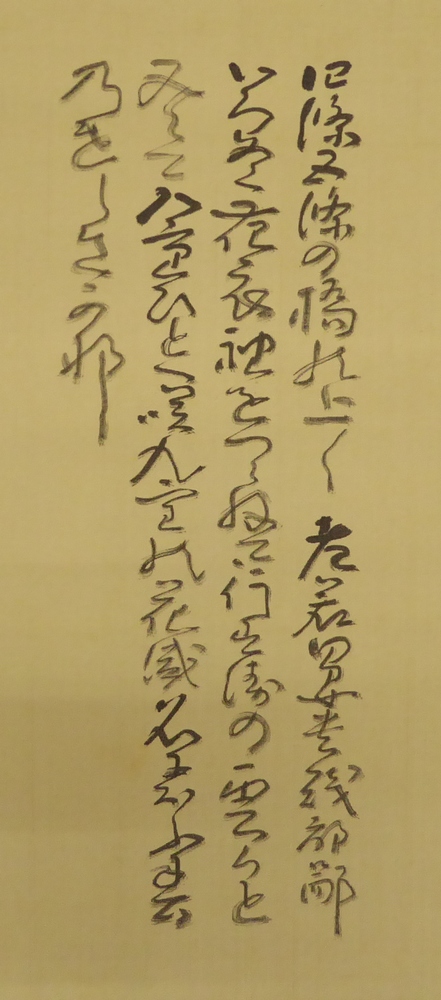 四條五條の橋の上〱 老若男女貴賤都鄙
いろめく花衣袖をつらねて行すゑの雲かと
見えて八重ひとへ咲九重の花盛名におふ春
乃けしきかな